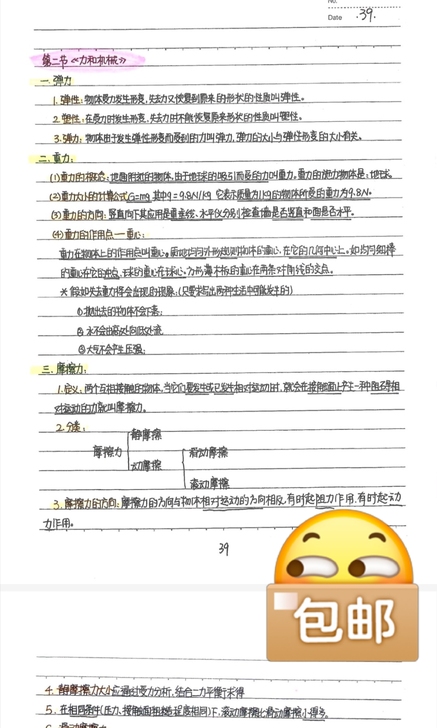 No.
Date .39.
第二节《力和机械》
一. 弹力
1. 弹性: 物体受力发生形变, 失去力又恢复到原来的形状的性质叫弹性。
2. 塑性: 在受力时发生形变, 失去力时不能恢复原来形状的性质叫塑性。
3. 弹力: 物体由于发生弹性形变而受到的力叫弹力, 弹力的大小与弹性形变的大小有关。
二. 重力:
(1)重力的概念: 地面附近的物体, 由于地球的吸引而受的力叫重力, 重力的施力物体是: 地球.
(2)重力大小的计算公式G=mg 其中g=9.8N/kg 它表示质量为1kg的物体所受的重力为9.8N。
(3)重力的方向: 竖直向下其应用是重垂线、水平仪分别检查墙是否竖直和面是否水平。
(4)重力的作用点一重心:
重力在物体上的作用点叫重心。质地均匀外形规则物体的重心, 在它的几何中心上。如均匀细棒
的重心在它的中点, 球的重心在球心。方形薄木板的重心在两条对角线的交点。
* 假如失去重力将会出现的现象: (只要求写出两种生活中可能发生的)
①抛出去的物体不会下落;
② 水不会由高处向低处流
③大气不会产生压强;
三. 摩擦力:
1. 定义: 两个互相接触的物体, 当它们要发生或已发生相对运动时, 就会在接触面上产生一种阻碍相
对运动的力就叫摩擦力。
2. 分类:
静摩擦
摩擦力
动摩擦
滑动摩擦
滚动摩擦
3. 摩擦力的方向: 摩擦力的方向与物体相对运动的方向相反, 有时起阻力作用, 有时起动
力作用。
39
包邮
4. 静摩擦力大小应通过受力分析, 结合二力平衡求得
5. 在相同条件(压力、接触面粗糙程度相同)下, 滚动摩擦比滑动摩擦小得多。